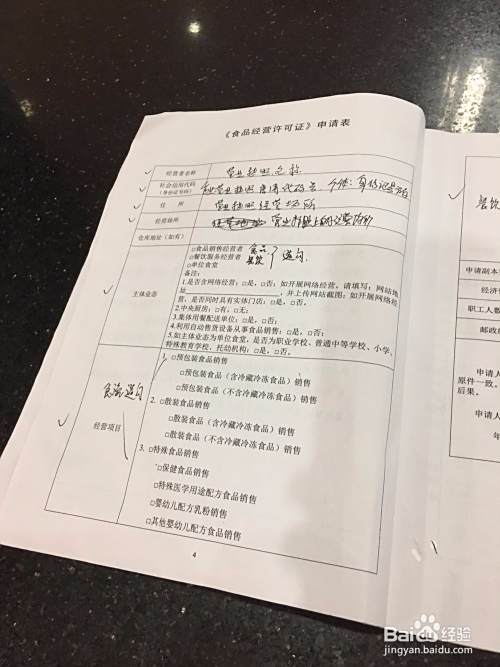 《食品经营许可证》申请表
经营者名称 营业执照名称
社会信用代码
(身份证号码) 营业执照信用代码 个体：身份证号码
住 所 营业执照经营场所
经营场所 营业执照上的
仓库地址（如有）
主体业态
□食品销售经营者 食品
□餐饮服务经营者 餐饮 选勾
□单位食堂
备注：
1.是否含网络经营：□是，□否；如开展网络经营，请填写：网站地
址 ，并上传网站截图；如开展网络经
营，是否同时具有实体门店：□是，□否。
2.中央厨房：□有，□无；
3.集体用餐配送单位：□是，□否；
4.利用自动售货设备从事食品销售：□是，□否；
5.如主体业态为单位食堂，是否为职业学校、普通中等学校、小学、
特殊教育学校、托幼机构：□是，□否。
经营项目
选勾
1. □预包装食品销售
□预包装食品（含冷藏冷冻食品）销售
□预包装食品（不含冷藏冷冻食品）销售
2. □散装食品销售
□散装食品（含冷藏冷冻食品）销售
□散装食品（不含冷藏冷冻食品）销售
3. □特殊食品销售
□保健食品销售
□特殊医学用途配方食品销售
□婴幼儿配方乳粉销售
□其他婴幼儿配方食品销售
4
餐饮
申请副本
经济
职工人数
邮政
申请人
原件一致。
后果。
申请人
Baidu经验
jingyan.baidu.com